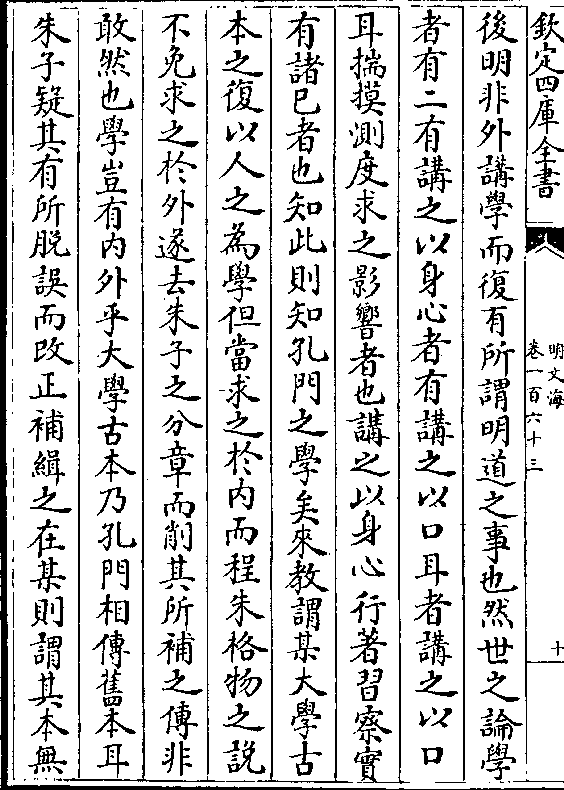 欽定四庫全書
明文海
卷一百六十三
十
後明非外講學而復有所謂明道之事也然世之論學
者有二有講之以身心者有講之以口耳者講之以口
耳揣摸測度求之影響者也講之以身心行著習察實
有諸已者也知此則知孔門之學矣來教謂某大學古
本之復以人之為學但當求之於内而程朱格物之說
不免求之於外遂去朱子之分章而削其所補之傳非
敢然也學豈有内外乎大學古本乃孔門相傳舊本耳
朱子疑其有所脱誤而改正補緝之在某則謂其本無